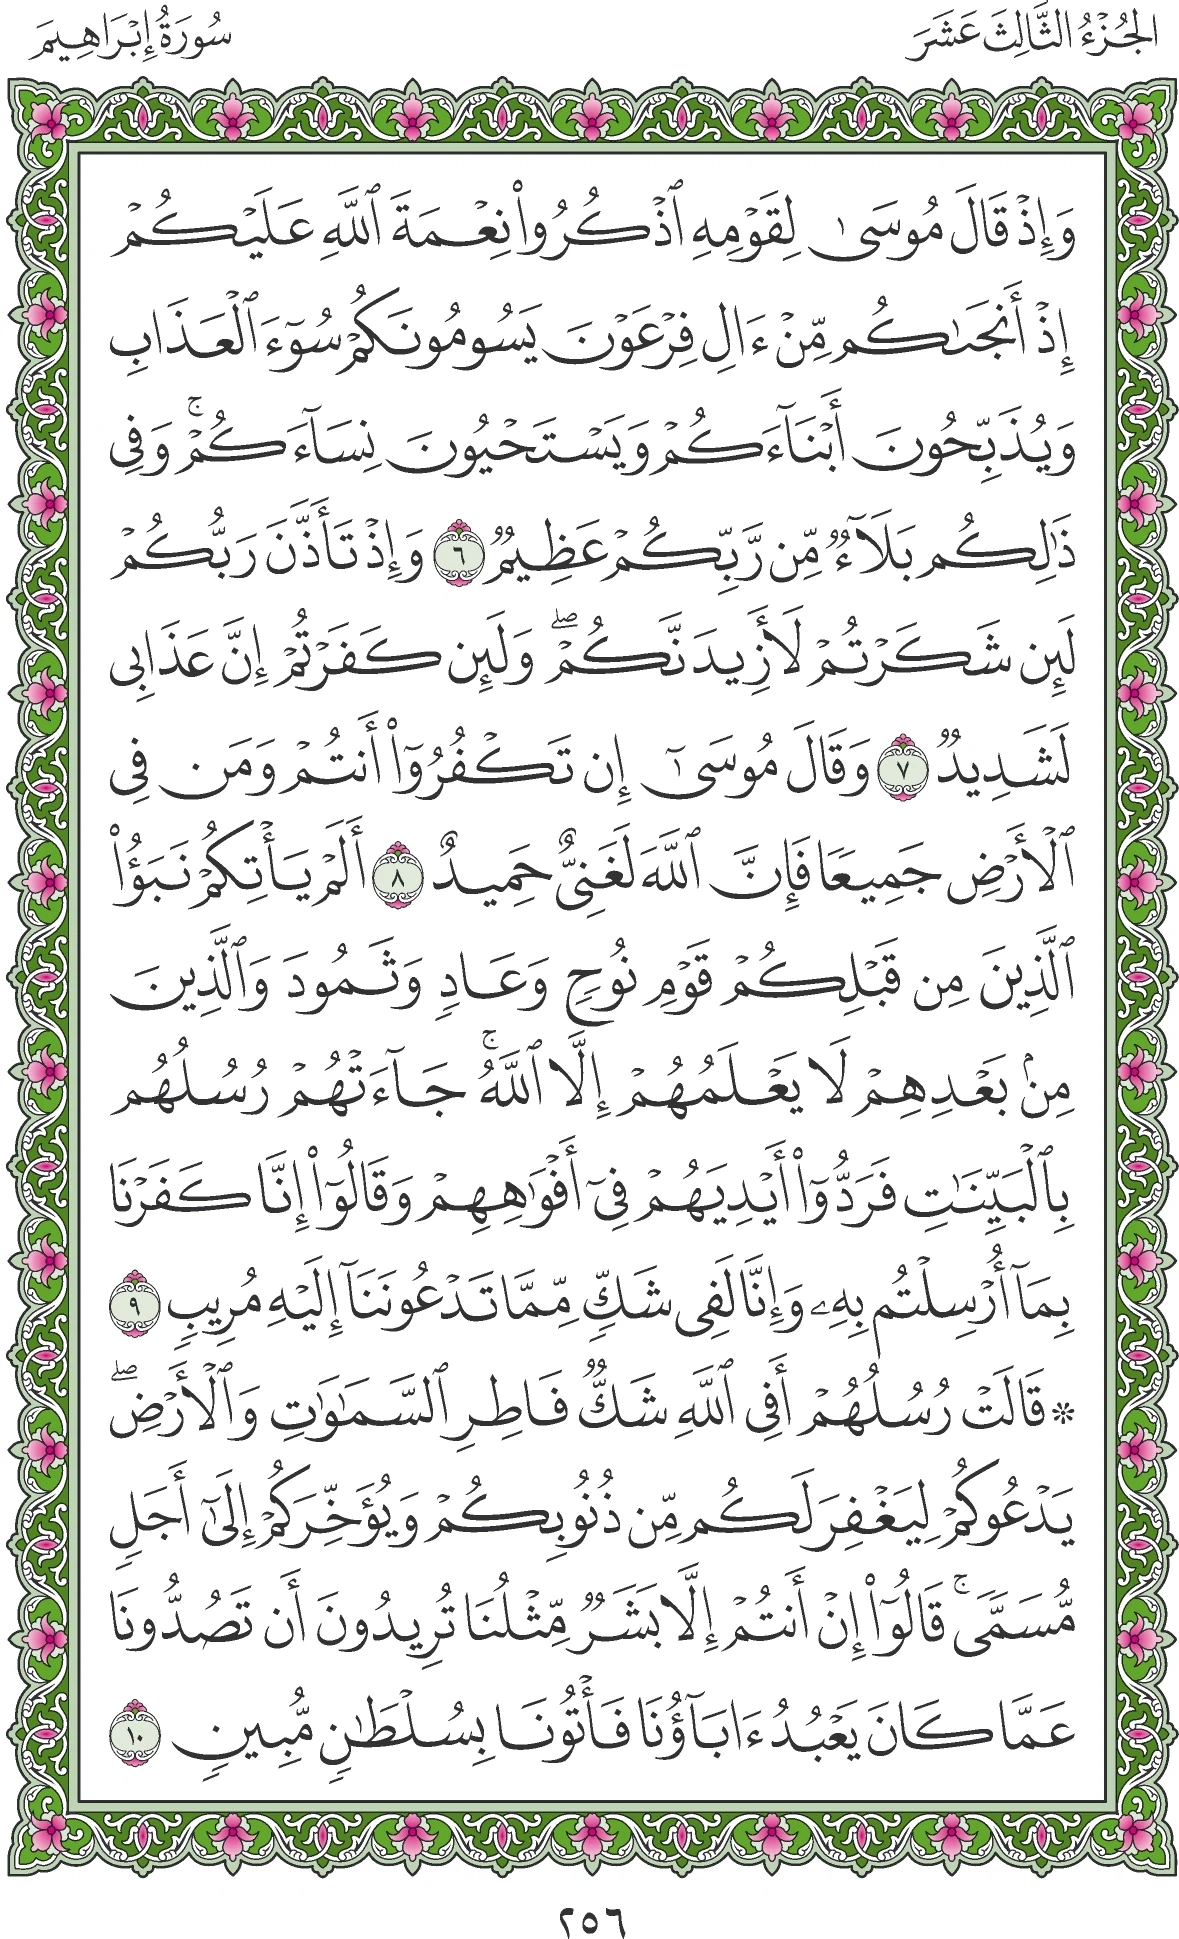 الجُزْءُ الثَّالِثَ عَشَرَ
سُورَةُ إِبْرَاهِيمَ
وَإِذْ قَالَ مُوسَىٰ لِقَوْمِهِ ٱذْكُرُوا۟ نِعْمَةَ ٱللَّهِ عَلَيْكُمْ
إِذْ أَنجَىٰكُم مِّنْ ءَالِ فِرْعَوْنَ يَسُومُونَكُمْ سُوٓءَ ٱلْعَذَابِ
وَيُذَبِّحُونَ أَبْنَآءَكُمْ وَيَسْتَحْيُونَ نِسَآءَكُمْ ۚ وَفِى
ذَٰلِكُم بَلَآءٌ مِّن رَّبِّكُمْ عَظِيمٌ ٦ وَإِذْ تَأَذَّنَ رَبُّكُمْ
لَئِن شَكَرْتُمْ لَأَزِيدَنَّكُمْ ۖ وَلَئِن كَفَرْتُمْ إِنَّ عَذَابِى
لَشَدِيدٌ ٧ وَقَالَ مُوسَىٰٓ إِن تَكْفُرُوٓا۟ أَنتُمْ وَمَن فِى
ٱلْأَرْضِ جَمِيعًا فَإِنَّ ٱللَّهَ لَغَنِىٌّ حَمِيدٌ ٨ أَلَمْ يَأْتِكُمْ نَبَؤُا۟
ٱلَّذِينَ مِن قَبْلِكُمْ قَوْمِ نُوحٍ وَعَادٍ وَثَمُودَ وَٱلَّذِينَ
مِنۢ بَعْدِهِمْ لَا يَعْلَمُهُمْ إِلَّا ٱللَّهُ ۚ جَآءَتْهُمْ رُسُلُهُم
بِٱلْبَيِّنَٰتِ فَرَدُّوٓا۟ أَيْدِيَهُمْ فِىٓ أَفْوَٰهِهِمْ وَقَالُوٓا۟ إِنَّا كَفَرْنَا
بِمَآ أُرْسِلْتُم بِهِۦ وَإِنَّا لَفِى شَكٍّ مِّمَّا تَدْعُونَنَآ إِلَيْهِ مُرِيبٍ ٩
۞ قَالَتْ رُسُلُهُمْ أَفِى ٱللَّهِ شَكٌّ فَاطِرِ ٱلسَّمَٰوَٰتِ وَٱلْأَرْضِ ۖ
يَدْعُوكُمْ لِيَغْفِرَ لَكُم مِّن ذُنُوبِكُمْ وَيُؤَخِّرَكُمْ إِلَىٰٓ أَجَلٍ
مُّسَمًّى ۚ قَالُوٓا۟ إِنْ أَنتُمْ إِلَّا بَشَرٌ مِّثْلُنَا تُرِيدُونَ أَن تَصُدُّونَا
عَمَّا كَانَ يَعْبُدُ ءَابَآؤُنَا فَأْتُونَا بِسُلْطَٰنٍ مُّبِينٍ ١٠
٢٥٦